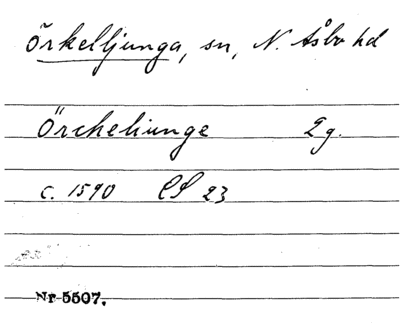 Örkelljunga, sn, N. Åsbo hd
Örcheliunge 2 g.
c. 1590 CS 23
Nr 5507.